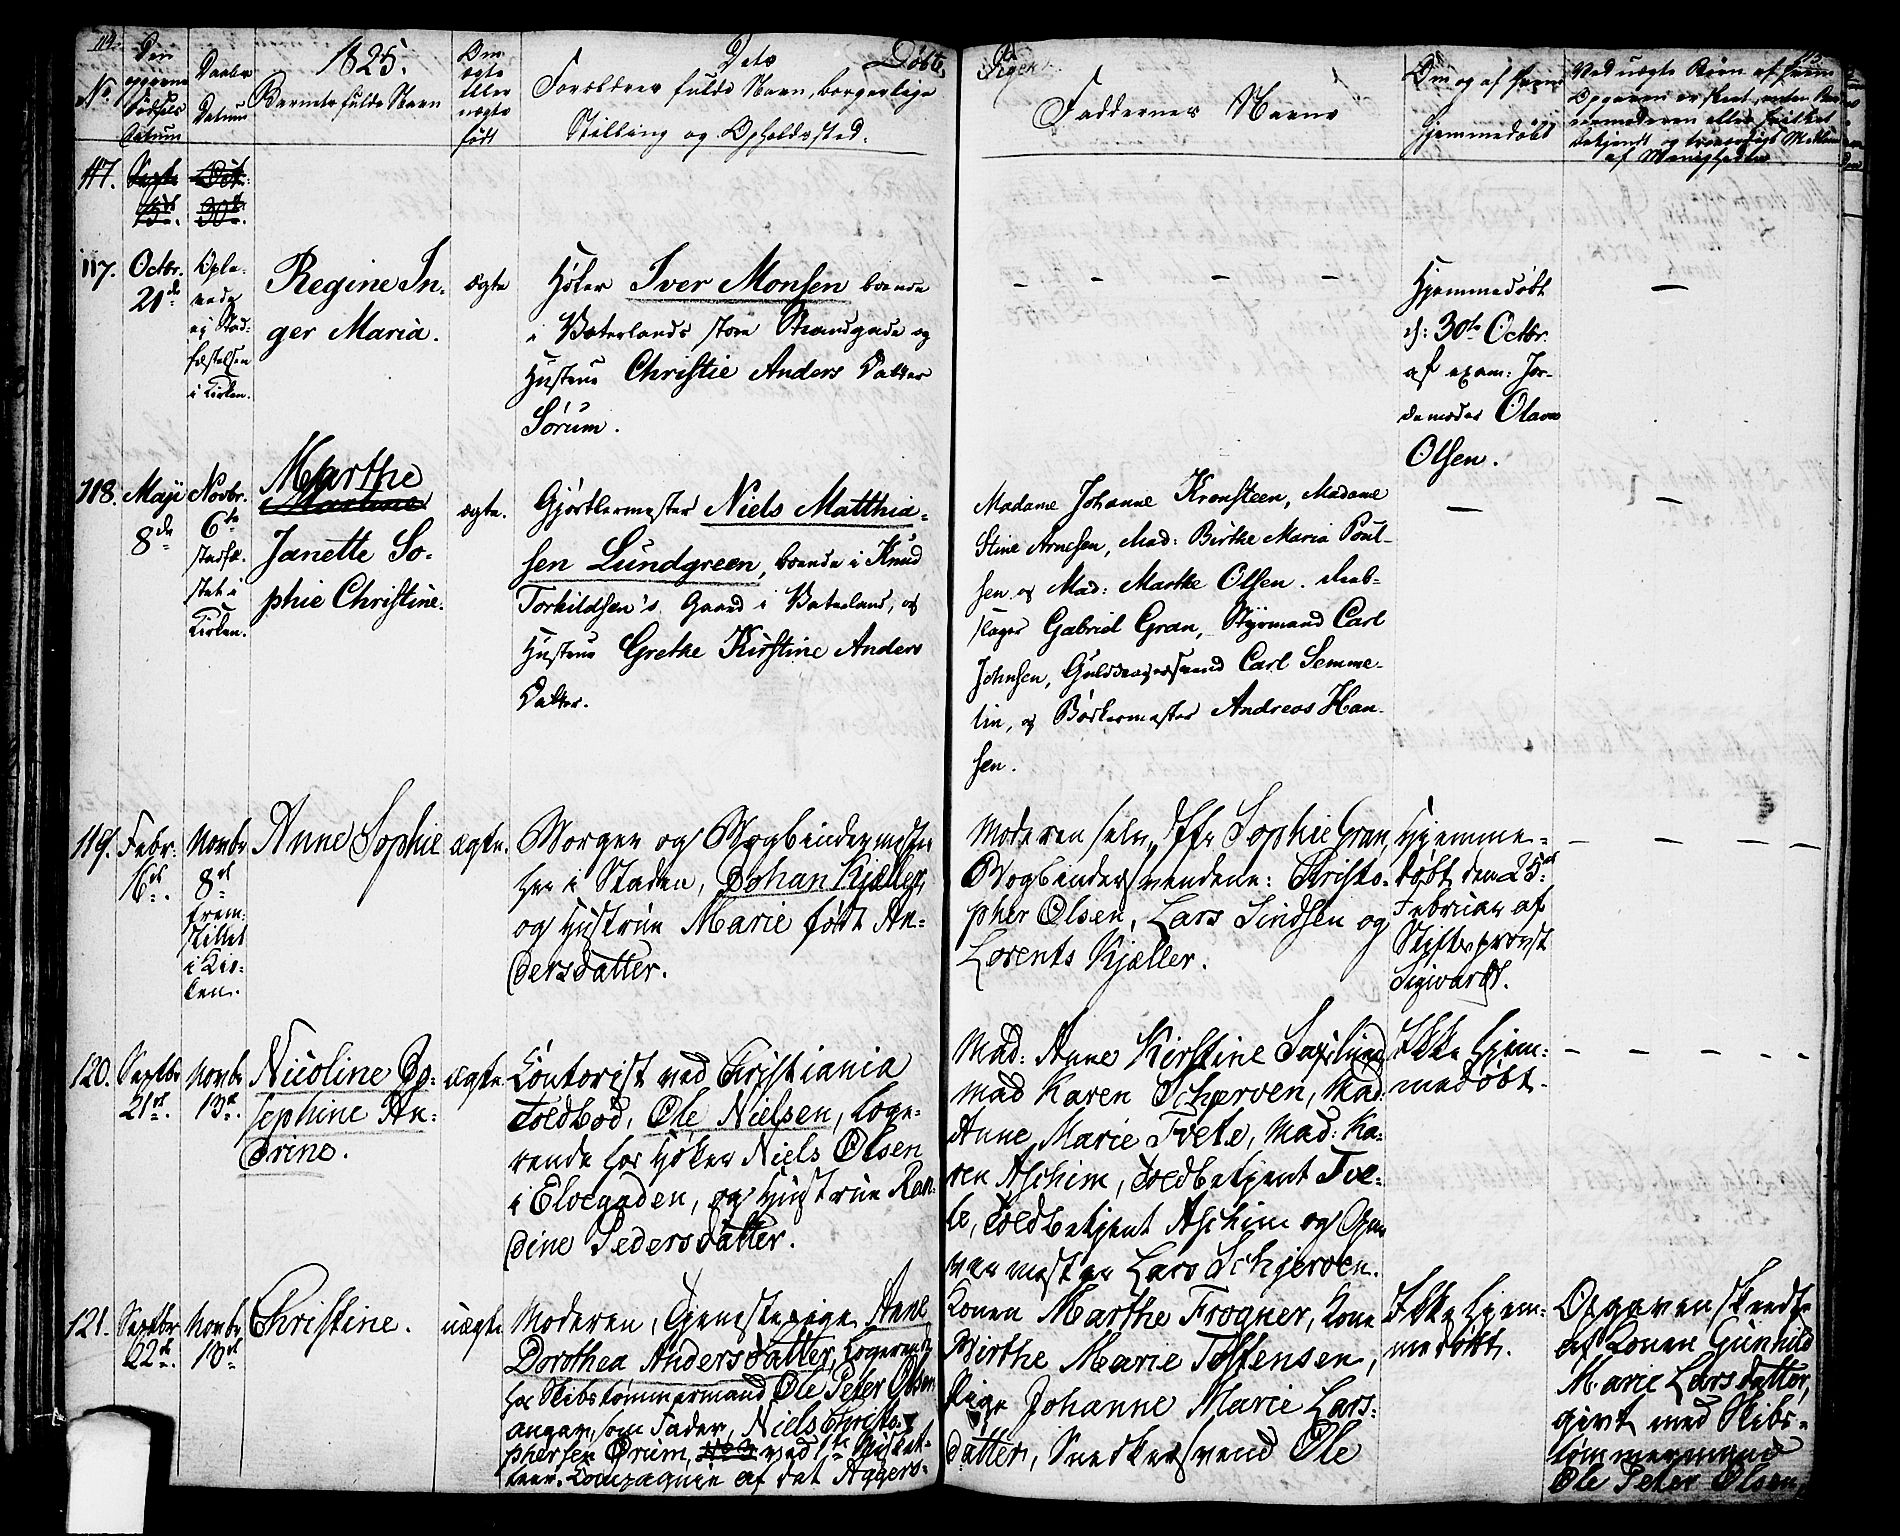 114.
No
Den
opgivne
Fødsels
Datum
Daabs
Datum
1825.
Barnets fulde Navn
Om
ægte
eller
uægte
født
Dets
Forældres fulde Navn, borgerlige
Stilling og Opholdssted.
Døbte
Piger
Faddernes Navne
Om og af hvem
hjemmedøbt
115.
Ved uægte Børn af hvem
Opgaven er skeet, enten
eller hvilket
bekjendt og troværdigt Medlem
af Menigheden
117.
Septbr
15de
Oct.
30te
117.
Octbr.
21de
Ople-
vede
ej Stad-
fæstelsen
i Kirken.
Regine In-
ger Maria.
ægte
Høker Iver Monsen boende
i Vaterlands store Strandgade og
Hustrue Christie Anders Datter
Sørum.
- - - -
Hjemmedøbt
d: 30te Octbr.
af exam: Jor-
demoder Olava
Olsen.
-
118.
Maji
8de
Novbr.
6te
stadfæ-
stet i
Kirken.
Marthe
Martine
Janette So-
phie Christine.
ægte.
Gjørtlermester Niels Matthia-
sen Lundgreen, boende i Knud
Torkildsen's Gaard i Vaterland, og
Hustrue Grethe Kirstine Anders
Datter.
Madame Johanne Kronsteen, Madame
Stine Arnesen, Mad: Birthe Maria Poul-
sen og Mad: Marthe Olsen. Reb-
slager Gabriel Gran, Styrmand Carl
Johnsen, Guldsmedsvend Carl Semme-
lin, og Bødkermester Andreas Han-
sen.
-
-
119.
Febr.
6te.
Novbr
8de
frem-
stillet
i Kir-
ken.
Anne Sophie
ægte.
Borger og Bogbindermester
her i Staden, Johan Kjæller,
og Hustrue Marie født An-
dersdatter.
Moderen selv, Jfr Sophie Gran,
Bogbindersvendene: Christo-
pher Olsen, Lars Lindsen og
Lorents Kjæller.
Hjemme-
døbt den 25de
Februar af
Stiftsprovst
Sigwardt.
- - - - -
120.
Septbr
21de.
Novbr
13de.
Nicoline Jo-
sephine An-
drine.
ægte
Contorist ved Christiania
Toldbod, Ole Nielsen, loge-
rende hos Høker Niels Olsen
i Elvegaden, og Hustrue Ran-
dine Pedersdatter.
Mad: Anne Kirstine Saxlund
Mad Karen Schjerven, Mad:
Anne Marie Tvete, Mad: Ka-
ren Aschim, Toldbetjent Tve-
te, Toldbetjent Aschim og
Lars Schjerven.
Ikke hjem-
medøbt.
- - - - - -
121.
Septbr
22de.
Novbr
13de
Christine.
uægte
Moderen, Tjenestepige Anne
Dorothea Andersdatter, logerende
hos Skibstømmermand Ole Peter Olsen
angav, som Fader, Niels Christo-
phersen Ørum, No 3 ved 1te Musket-
teer-Compagnie af det Aggers-
Konen Marthe Frogner, Kone
Birthe Marie Tostensen,
Pige Johanne Marie Lars-
datter, Snedkersvend Ole
Ikke hjem-
medøbt.
Opgaven skeedte
af Konen Gunhild
Marie Larsdatter,
givt med Skibs-
tømmermand
Ole Peter Olsen,